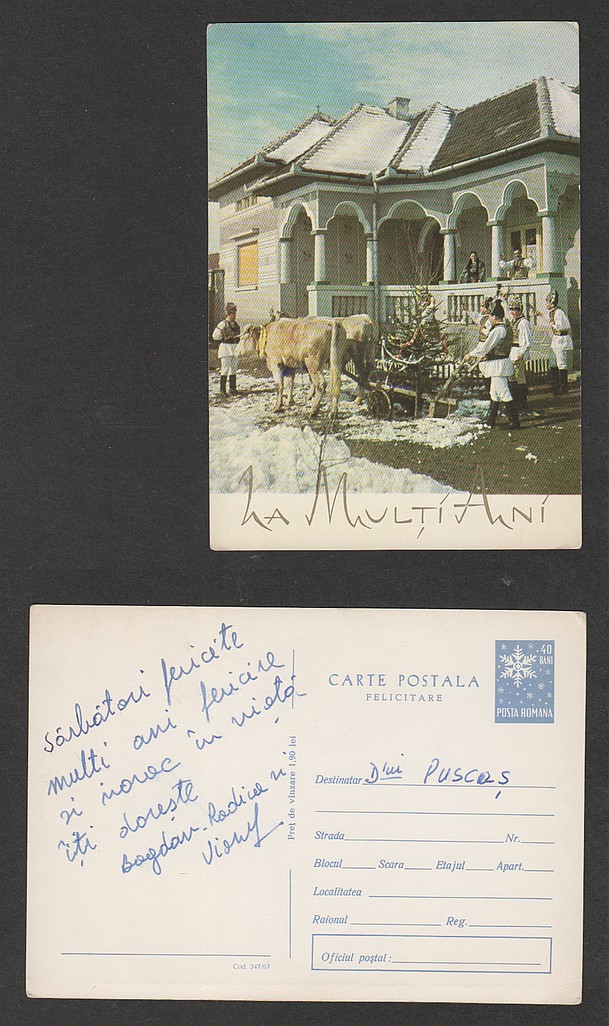 LA MULȚI ANI
Sărbători fericite
multi ani fericire
si noroc în viață
îți dorește
Bogdan-Rodica si
CARTE POSTALA
FELICITARE
40
BANI
POSTA ROMANA
Preț de vînzare 1,90 lei
Destinatar D nii PUSCAȘ
Strada Nr.
Blocul Scara Etajul Apart.
Localitatea
Raionul Reg.
Oficiul poștal:
Cod. 347/67